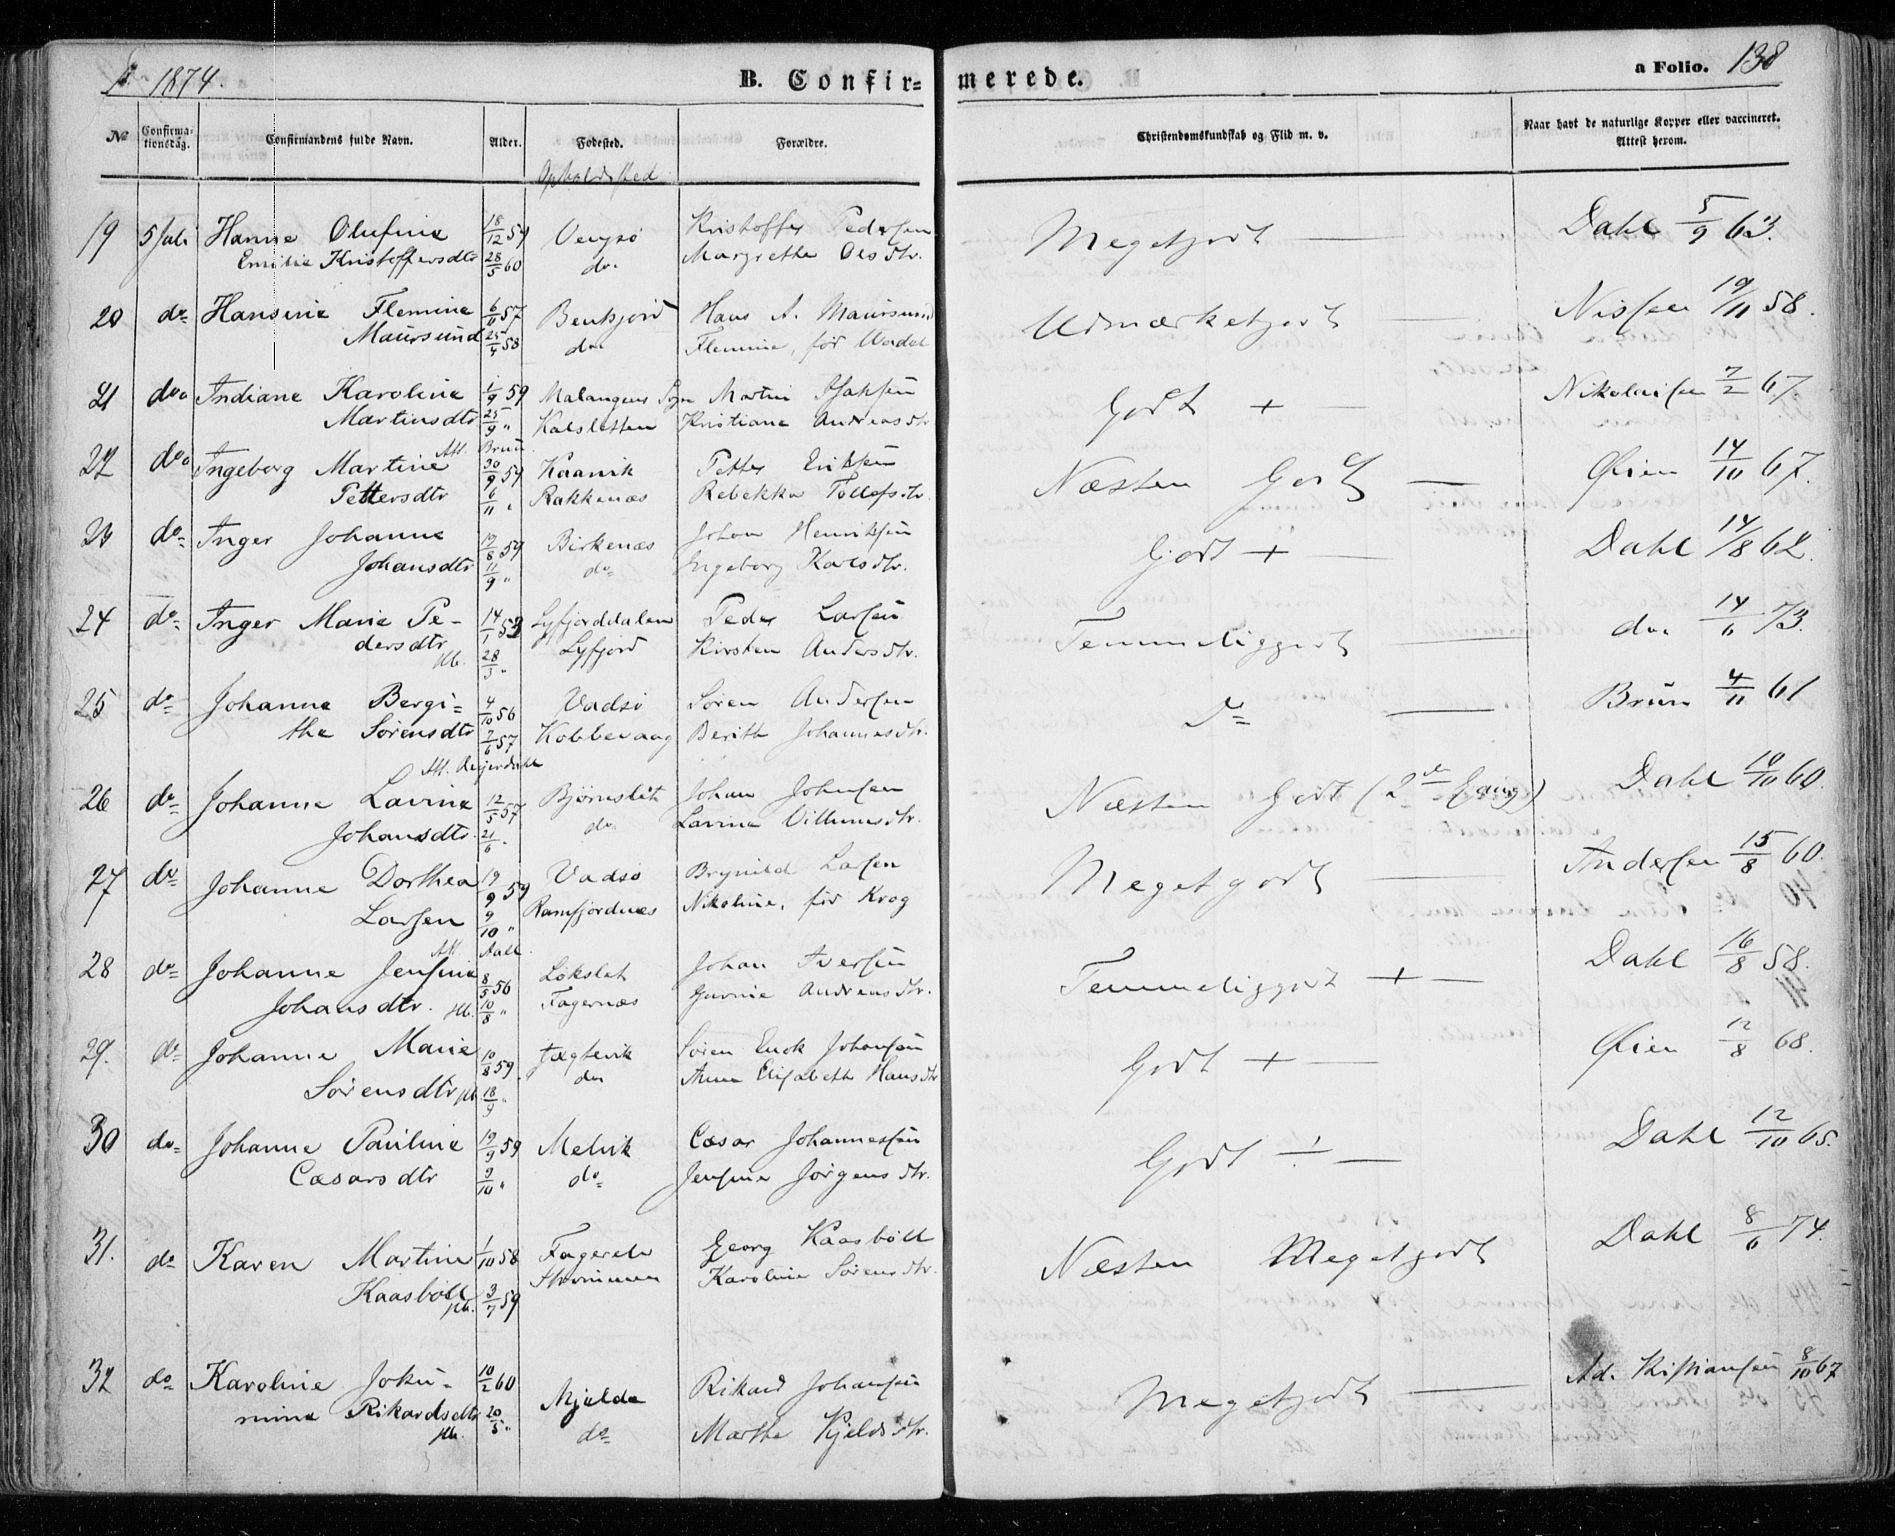 1874.
B. Confir=
merede.
a Folio. 138
No
Confirma-
tionsdag.
Confirmandens fulde Navn.
Alder.
Fødested.
Opholdssted
Forældre.
Christendomskundskab og Flid m. v.
Naar havt de naturlige Kopper eller vaccineret.
Attest herom.
19 5 Juli Hanne Olufine 18/12 59 Vengsø Kristoffer Pedersen Megetgodt — Dahl 5/9 63.
Emilie Kristoffersdtr 28/5 60 do. Margrethe Olsdtr.
20 do Hansine Flemine 6/11 57 Bentsjord Hans A. Maursund Udmærketgodt — Nissen 19/11 58.
Maursund 25/4 58 do Flemine, før
21 do Indiane Karoline 1/9 59 Malangens Sogn Martin Isaksen Godt + — Nikolaisen 7/2 67.
Martinsdtr 25/9 " Kalsletten Kristiane Andreasdtr
Att. Bruun
22 do Ingeborg Martine 30/9 59 Kaavik Petter Eriksen Næsten Godt — Øien 14/10 67.
Pettersdtr 6/11 " Rakkenæs Rebekka Tollefsdtr.
23 do Inger Johanne 19/8 59 Birkenæs Johan Henriksen Godt + — Dahl 14/8 62.
Johansdtr 11/9 " do Ingeborg Karlsdtr.
24 do Inger Marie Pe- 14/1 53 Lyfjorddalen Peder Larsen Temmeliggodt — do 14/6 73.
dersdtr 28/3 " Lyfjord Kirsten Andersdtr.
25 do Johanne Bergi= 4/10 56 Vadsø Søren Andersen do — Brun 4/11 61
the Sørensdtr 7/6 57 Kobbevaag Berith Johannesdtr.
26 do Johanne Lavine 12/5 57 Bjørnslet Johan Johnsen Næsten Godt (2den Gang) Dahl 10/10 60.
Johansdtr. 21/6 " do Lavina Villumsdtr.
27 do Johanne Dorthea 19/9 59 Vadsø Brynild Larsen Megetgodt — Andersen 15/8 60.
Larsen 9/10 " Ramfjordnæs Nikoline, før Krog
28 do Johanne Jensine 8/5 56 Lökslet Johan Iversen Temmeliggodt + — Dahl 16/8 58.
Johansdtr. 10/8 " Fagernæs Andreasdtr.
29. do Johanne Marie 10/8 59. Jægtevik Søren Enok Johansen Godt + — Øien 12/8 68.
Sørensdtr 18/9 " do Anne Elisabeth Hansdtr
30 do Johanne Pauline 19/9 59 Melvik Cæsar Johannessen Godt ÷ — Dahl 12/10 65.
Cæsarsdtr 3/10 " do Jensine Jørgensdtr.
31. do Karen Martine 1/10 58 Georg Kaasböll Næsten Megetgodt Dahl 8/6 74.
Kaasböll 3/7 59 Strømmen Karoline Sørensdtr.
32 do Karoline Joku- 10/2 60 Mjelde Rikard Johansen Megetgodt — Ad. Kristiansen 8/10 67
mine Rikardsdtr 20/5 " do Marthe Kjeldsdtr.